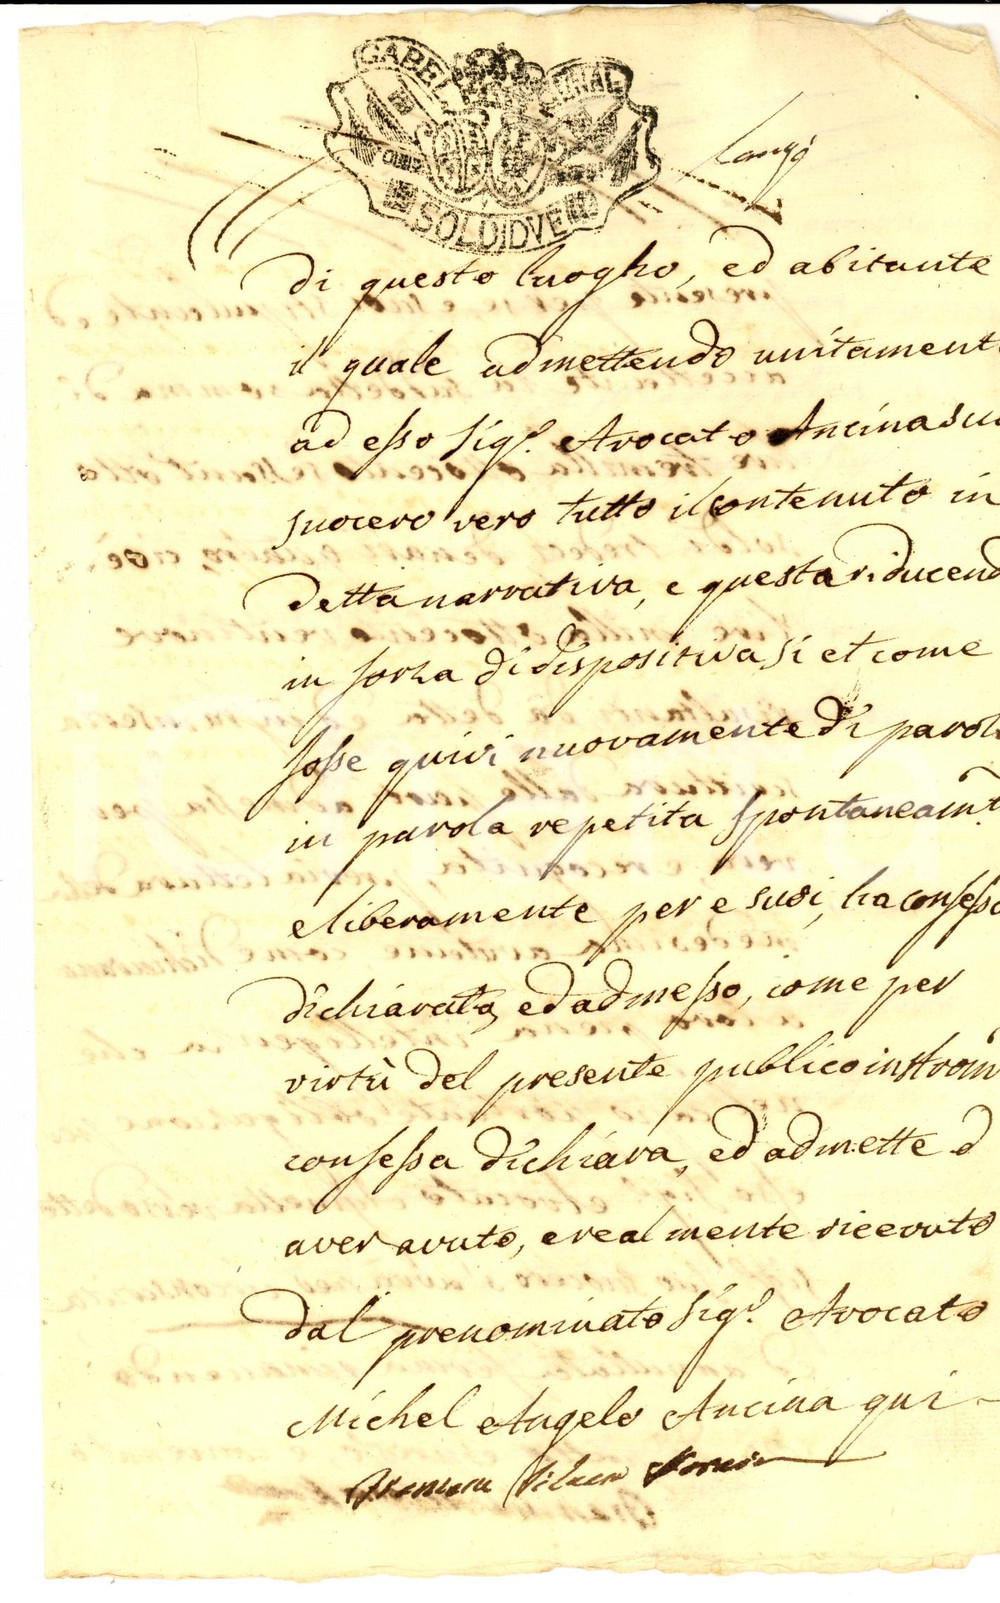 GABEL
SOLDIDVE
di questo luogho, ed abitante
il quale admettendo unitament
ad esso Sig.r Avocato Ancina suo
suocero vero tutto il contenuto in
detta narrativa, e questa riducend
in forza di dispositiva si et come
fosse quivi nuovamente di parola
in parola repetita spontaneam.te
e liberamente per e suoi, ha confess
dichiarato, ed admesso, come per
virtù del presente publico instrom
confessa dichiara, ed admette d
aver avuto, e realmente ricevuto
dal prenominato Sig.r Avocato
Michel Angelo Ancina qui -